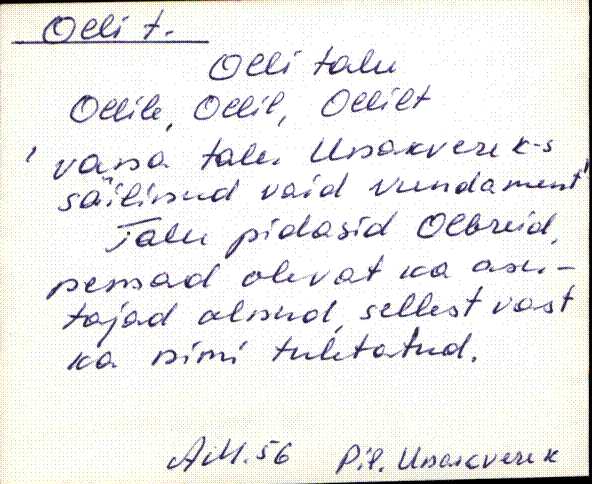 Olli t.
Olli talu
Ollile, Ollil, Ollilt
vana talu Unakvere k-s
säilinud vaid vundament
Talu pidasid Olbreid,
nemad olevat ka asu-
tajad olnud, sellest vast
ka nimi tuletatud.
AM. 56 Pil. Unakvere k